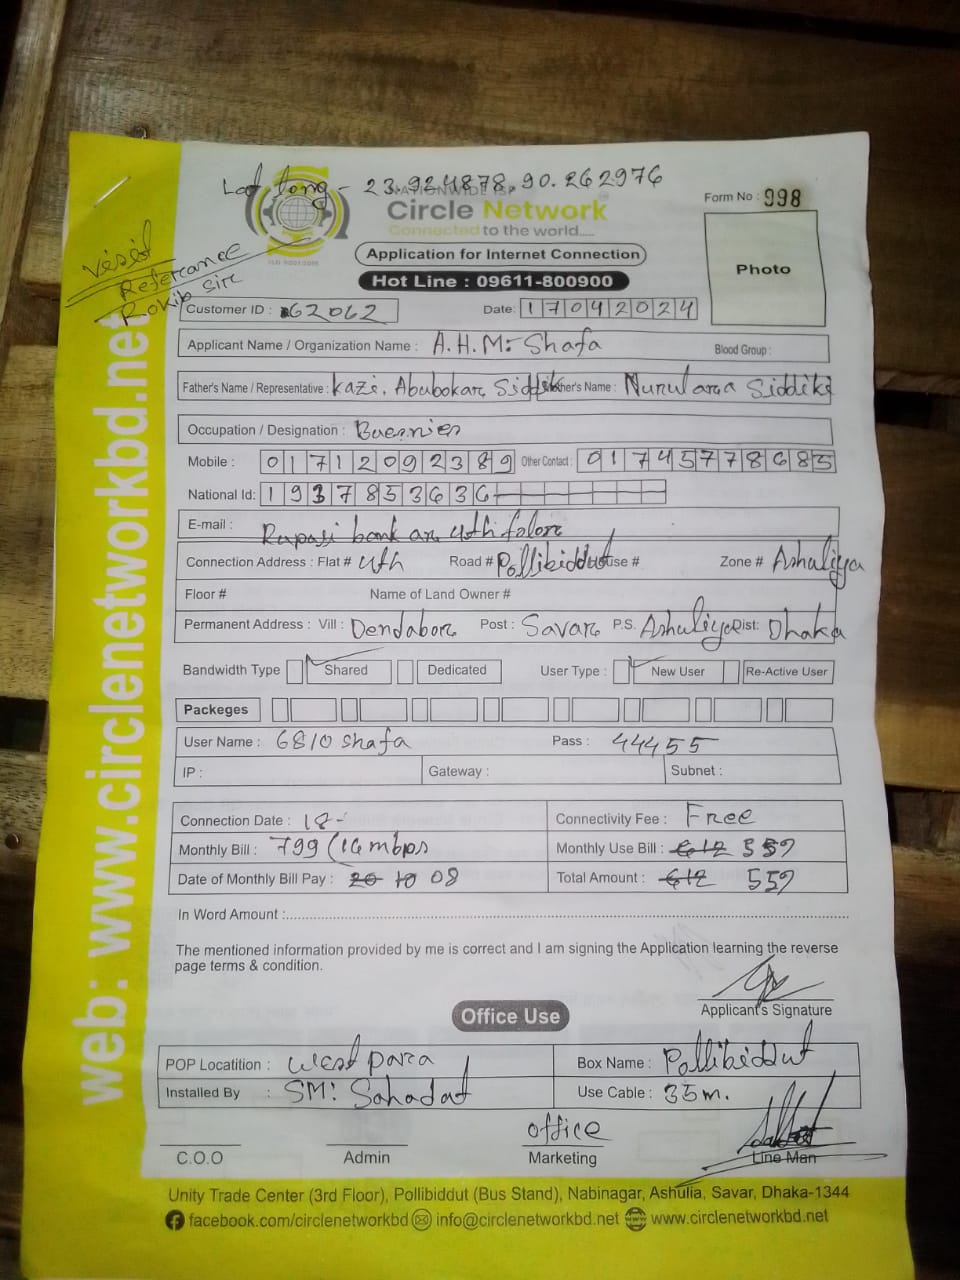 Lat long - 23.924878, 90.262976
NATIONWIDE ISP
Circle Network
Connected to the world.....
Form No : 998
Application for Internet Connection
Photo
Hot Line : 09611-800900
visit
Referance
Rokib Sir
Customer ID : 62062
Date: 17042024
Applicant Name / Organization Name : A.H.M: Shafa
Blood Group :
Father's Name / Representative : Kazi. Abubokar Siddik Mother's Name : Nurulara Siddiki
Occupation / Designation :
Mobile : 01712092389 Other Contact : 01745778685
National Id: 1937853636
E-mail : Rupali bank ar 4th folore
Connection Address : Flat # 4th Road # Pollibiddut House # Zone # Ashuliya
Floor # Name of Land Owner #
Permanent Address : Vill : Dendabor Post : Savar P.S. Ashuliya Dist: Dhaka
Bandwidth Type Shared Dedicated User Type : New User Re-Active User
Packeges
User Name : 6810 Shafa Pass : 44455
IP : Gateway : Subnet :
Connection Date : 18- Connectivity Fee : Free
Monthly Bill : 799 (16 mbps Monthly Use Bill : 612 559
Date of Monthly Bill Pay : 20 10 08 Total Amount : 612 559
In Word Amount :
The mentioned information provided by me is correct and I am signing the Application learning the reverse
page terms & condition.
Applicant's Signature
Office Use
POP Locatition : west para Box Name : Pollibiddut
Installed By : SM: Sahadat Use Cable : 35m.
office
C.O.O Admin Marketing Line Man
Unity Trade Center (3rd Floor), Pollibiddut (Bus Stand), Nabinagar, Ashulia, Savar, Dhaka-1344
facebook.com/circlenetworkbd info@circlenetworkbd.net www.circlenetworkbd.net
web: www.circlenetworkbd.net